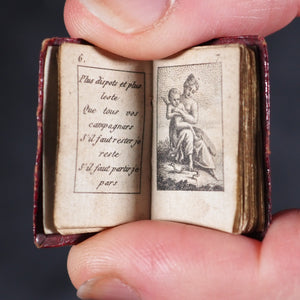 6.
Plus dispots et plus
leste
Que tous vos
campagnars
S'il faut rester je
reste
S'il faut partir je
pars